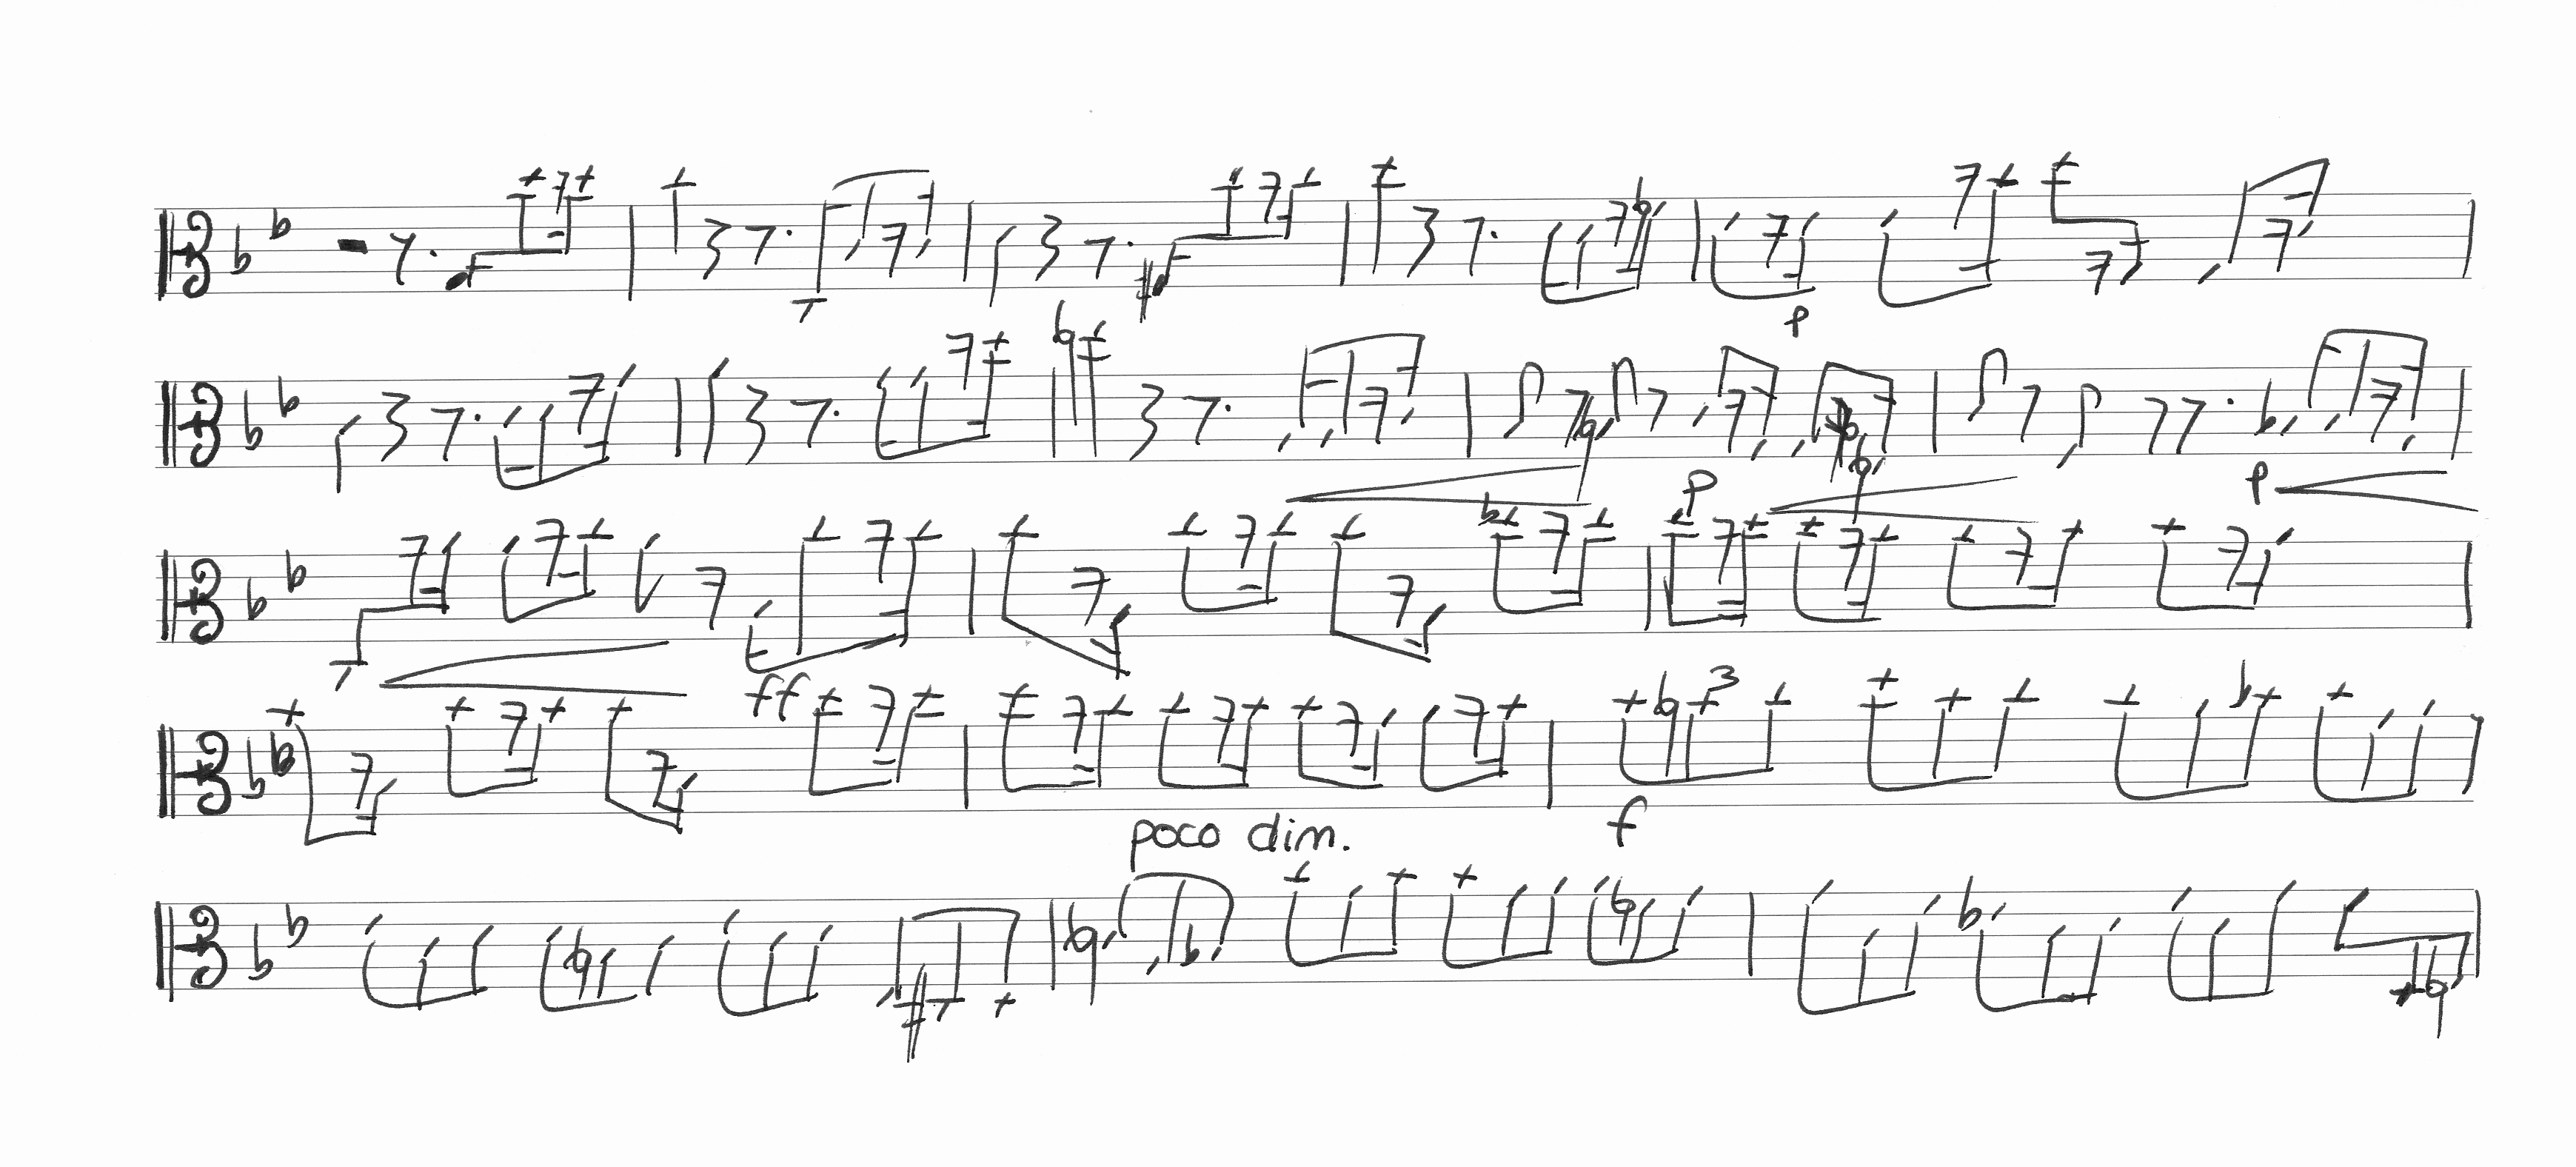 p
p p
ff
3
poco dim. f